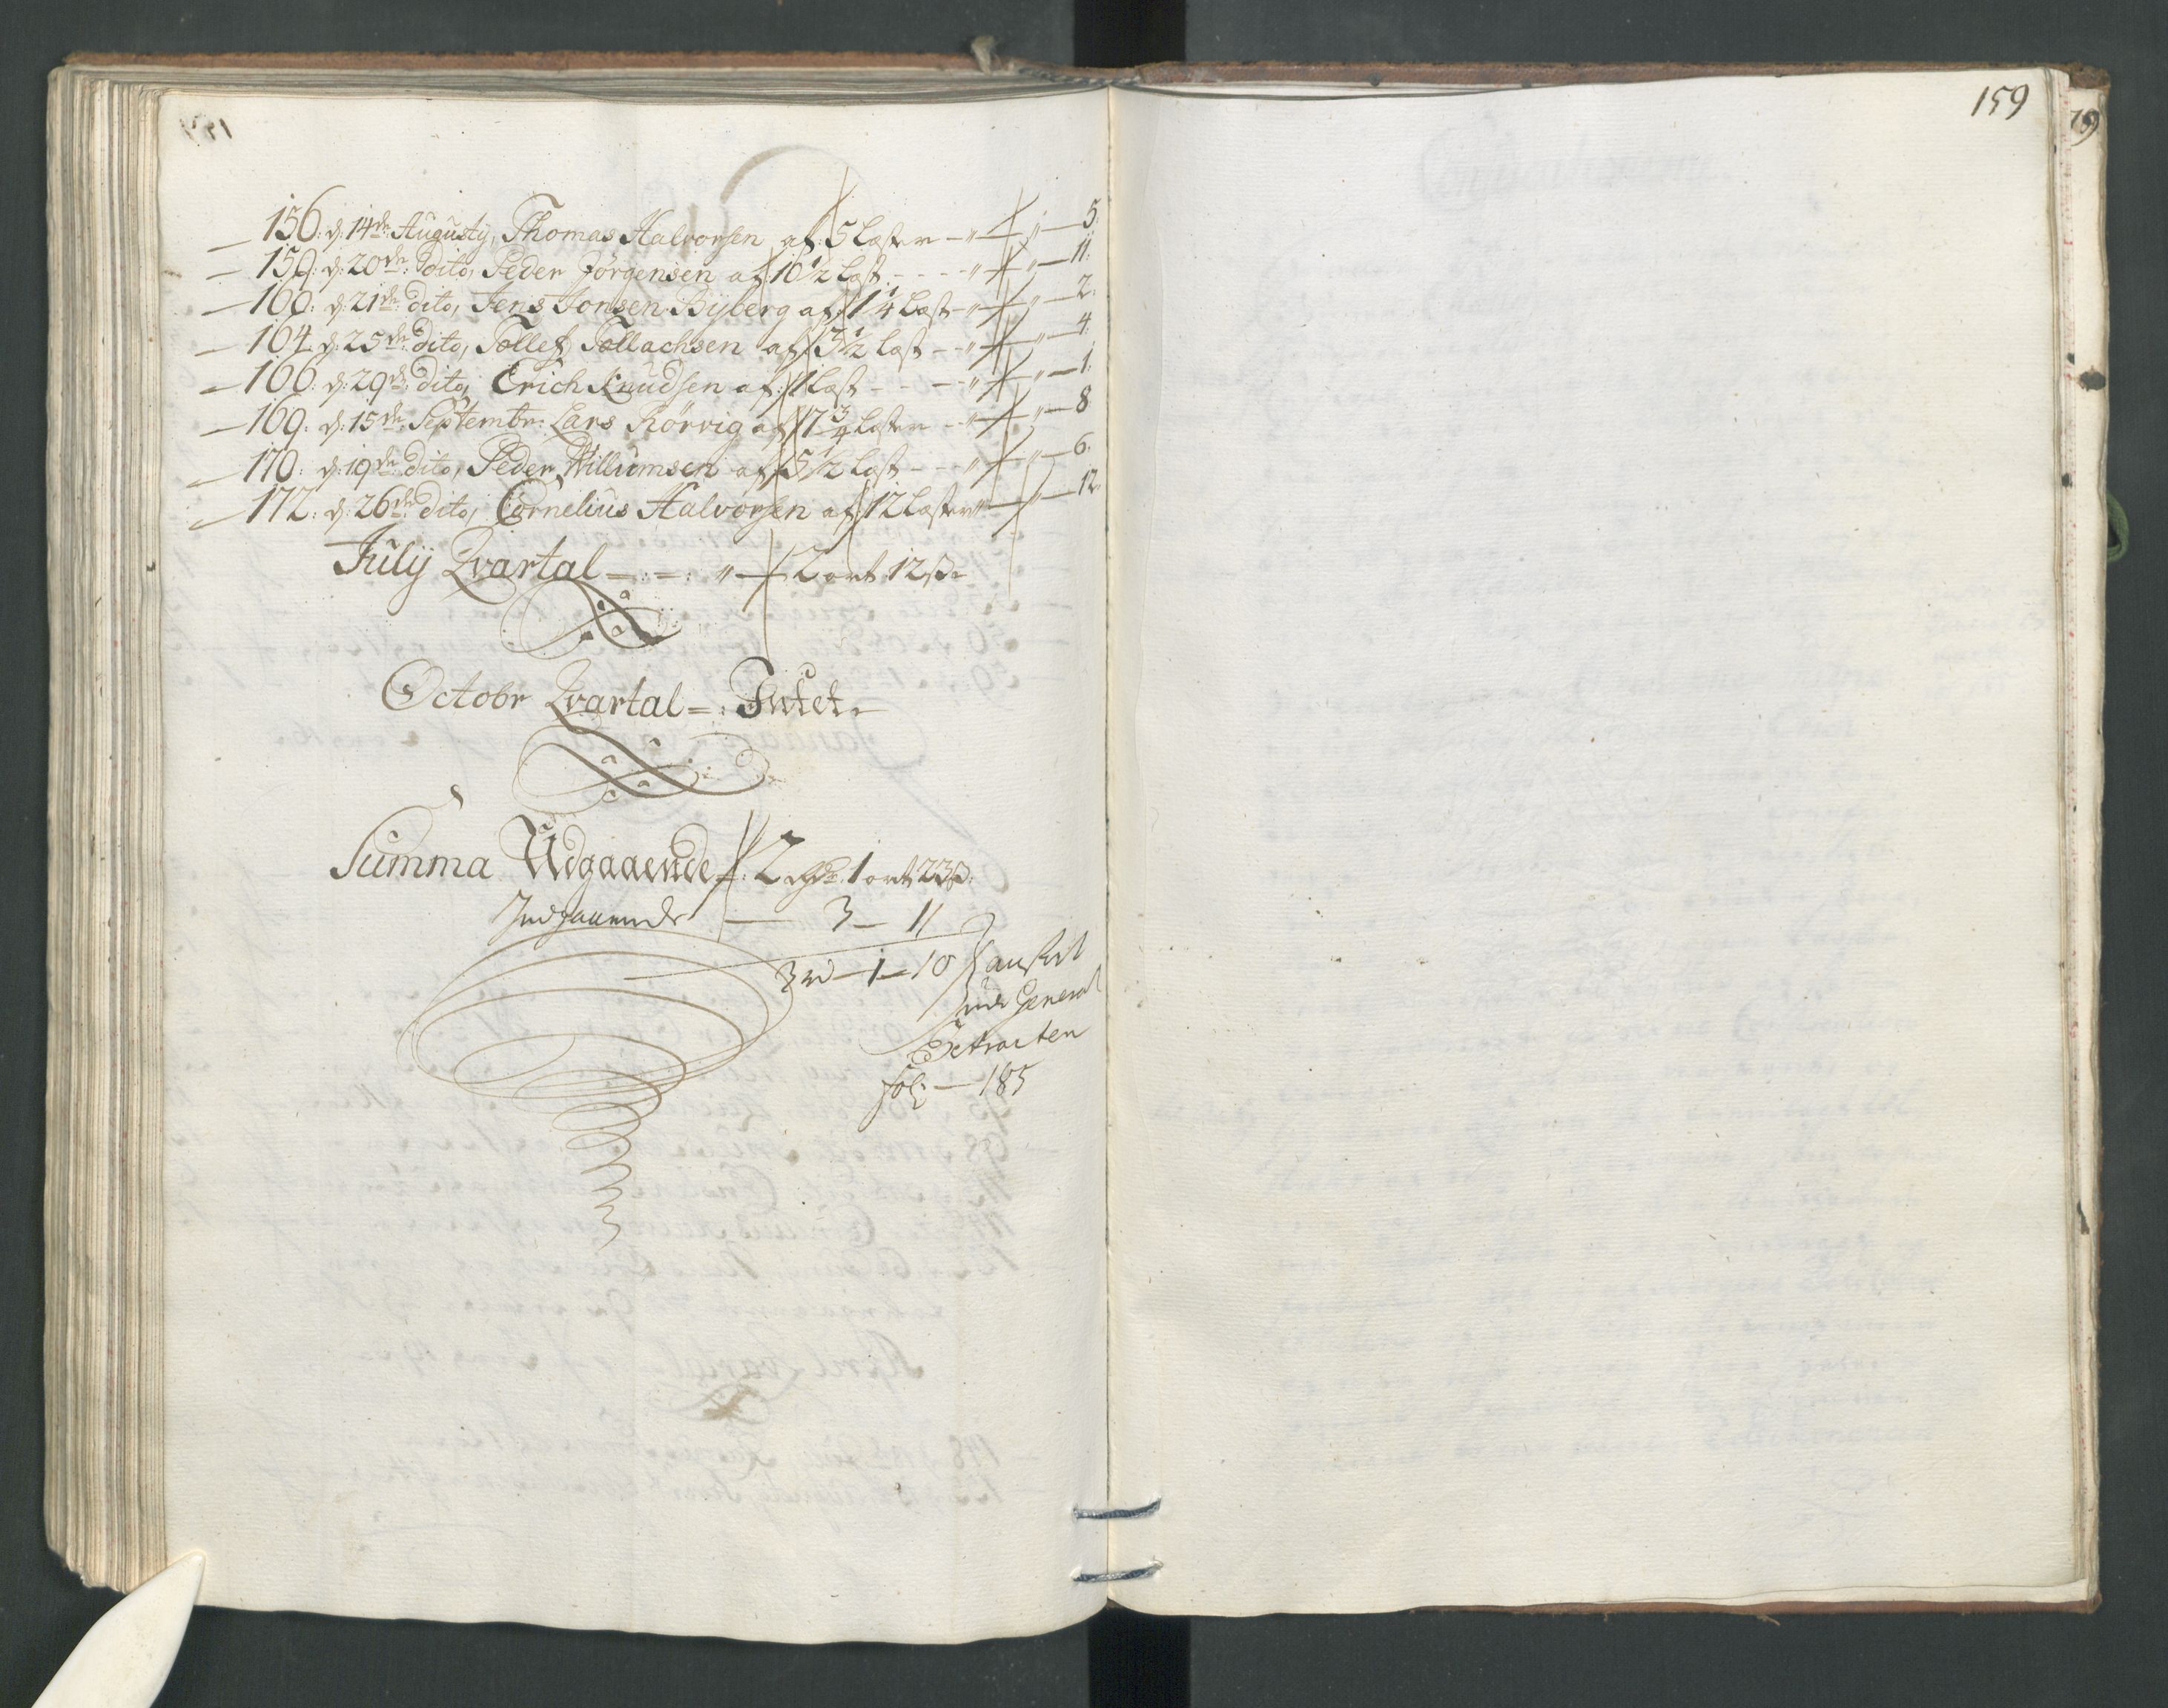 159
— 156: d: 14de Augusty, Thomas Halvorsen af 5 Læster — „ — „ — 5:
— 159: d: 20de dito, Peder Jörgensen af 10½ Læst - - - - „ — „ — 11:
— 160: d: 21de dito, Jens Jonsen Byberg af 1¼ Læst — „ — „ — 2:
— 164: d: 25de dito, Tollef Tollachsen af 3½ Læst - - „ — „ — 4:
— 166: d: 29de dito, Erich Knudsen af 1 Læst - - - „ — „ — 1:
— 169: d: 15de Septembr: Lars Körvig af 7¾ Læster - „ — „ — 8
— 170: d: 19de dito, Peder Willumsen af 5½ Læst - - - „ — „ — 6:
— 172: d: 26de dito, Cornelius Halvorsen af 12 Læster „ — „ — 12:
July Qvartal — : — : „ — 2 ort 12 s:
Octobr Qvartal — : Intet.
Summa Udgaaende — : 2 rdr. 1 ort 23 s:
Indgaaende — 3 — 11
3 rd — 1 — 10
General
Extracten
fol: — 185